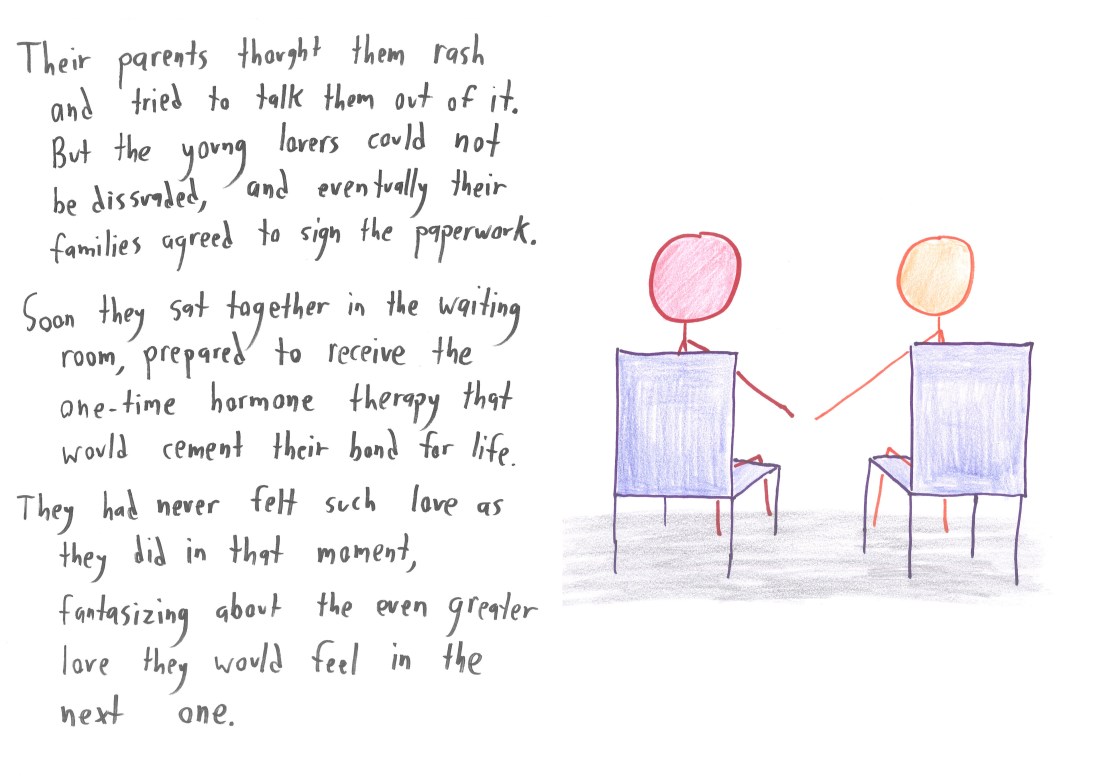 Their parents thought them rash
and tried to talk them out of it.
But the young lovers could not
be dissuaded, and eventually their
families agreed to sign the paperwork.
Soon they sat together in the waiting
room, prepared to receive the
one-time hormone therapy that
would cement their bond for life.
They had never felt such love as
they did in that moment,
fantasizing about the even greater
love they would feel in the
next one.